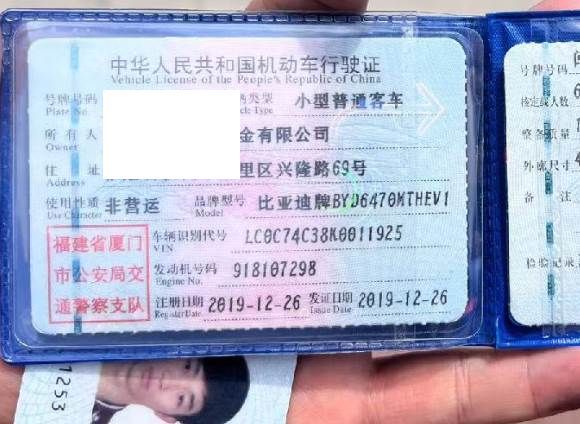 中华人民共和国机动车行驶证
Vehicle License of the People's Republic of China
号牌号码 类型 小型普通客车
Plate No. Type
所有人 金有限公司
Owner
住址 里区兴隆路69号
Address
使用性质 非营运 品牌型号 比亚迪牌BYD6470MTHEV1
Use Character Model
福建省厦门
市公安局交
通警察支队
车辆识别代号 LC0C74C38K0011925
VIN
发动机号码 918107298
Engine No.
注册日期 2019-12-26 发证日期 2019-12-26
Register Date Issue Date
号牌号
核定载人数 6
整备质量 1
外廓尺寸
备注
检验记录
1253